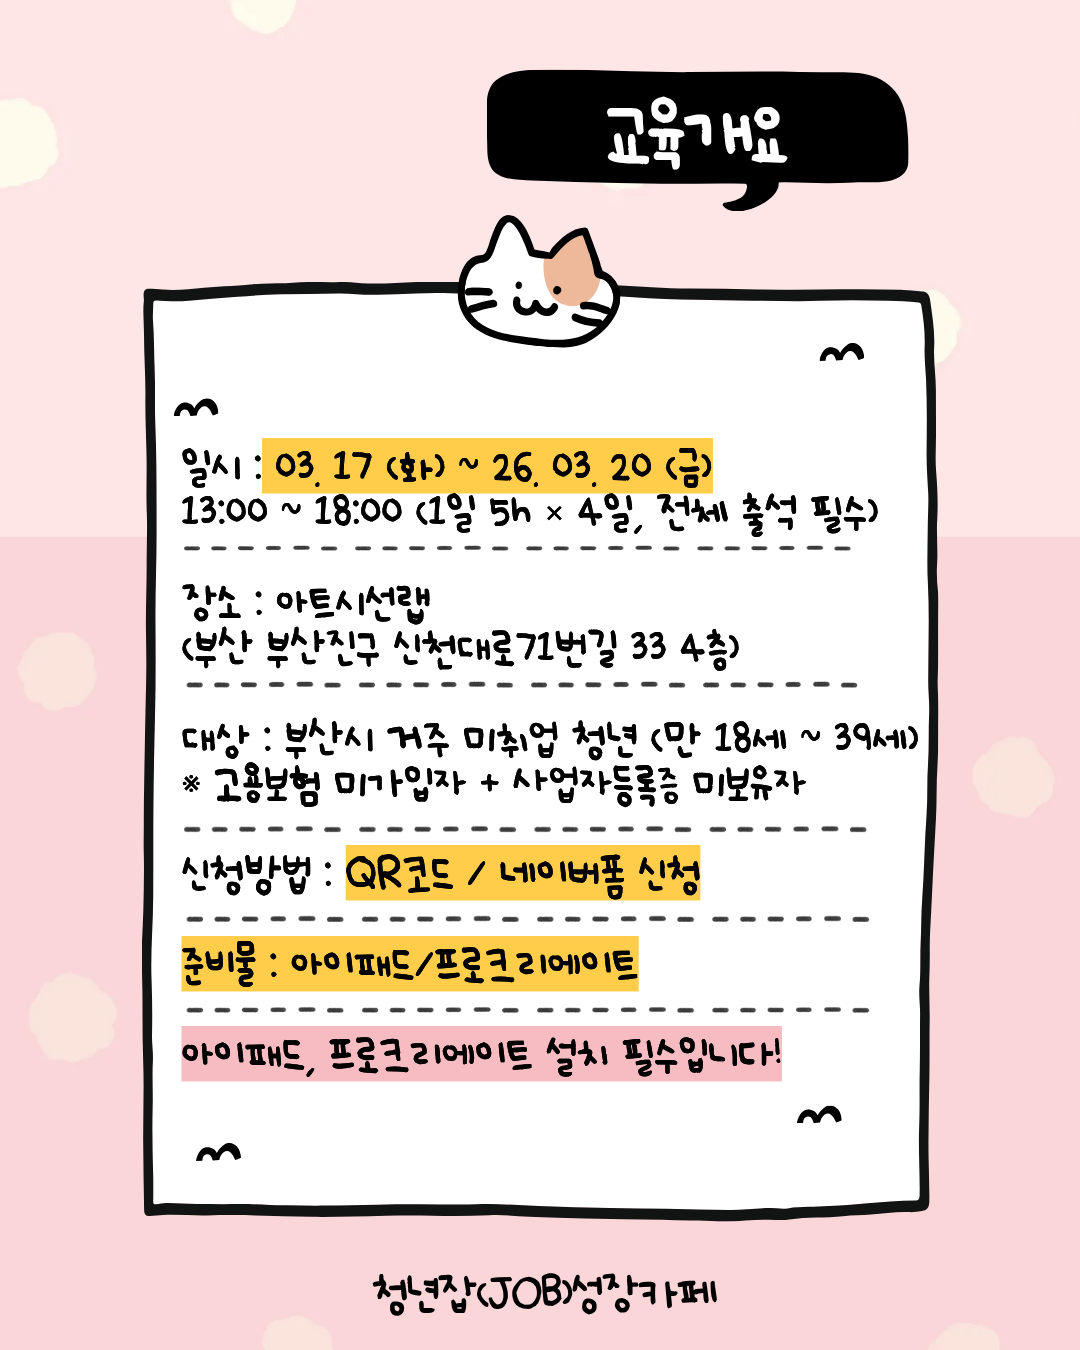 교육개요
일시 : 03. 17 (화) ~ 26. 03. 20 (금)
13:00 ~ 18:00 (1일 5h × 4일, 전체 출석 필수)
장소 : 아트시선랩
(부산 부산진구 신천대로71번길 33 4층)
대상 : 부산시 거주 미취업 청년 (만 18세 ~ 39세)
※ 고용보험 미가입자 + 사업자등록증 미보유자
신청방법 : QR코드 / 네이버폼 신청
준비물 : 아이패드/프로크리에이트
아이패드, 프로크리에이트 설치 필수입니다!
청년잡(JOB)성장카페